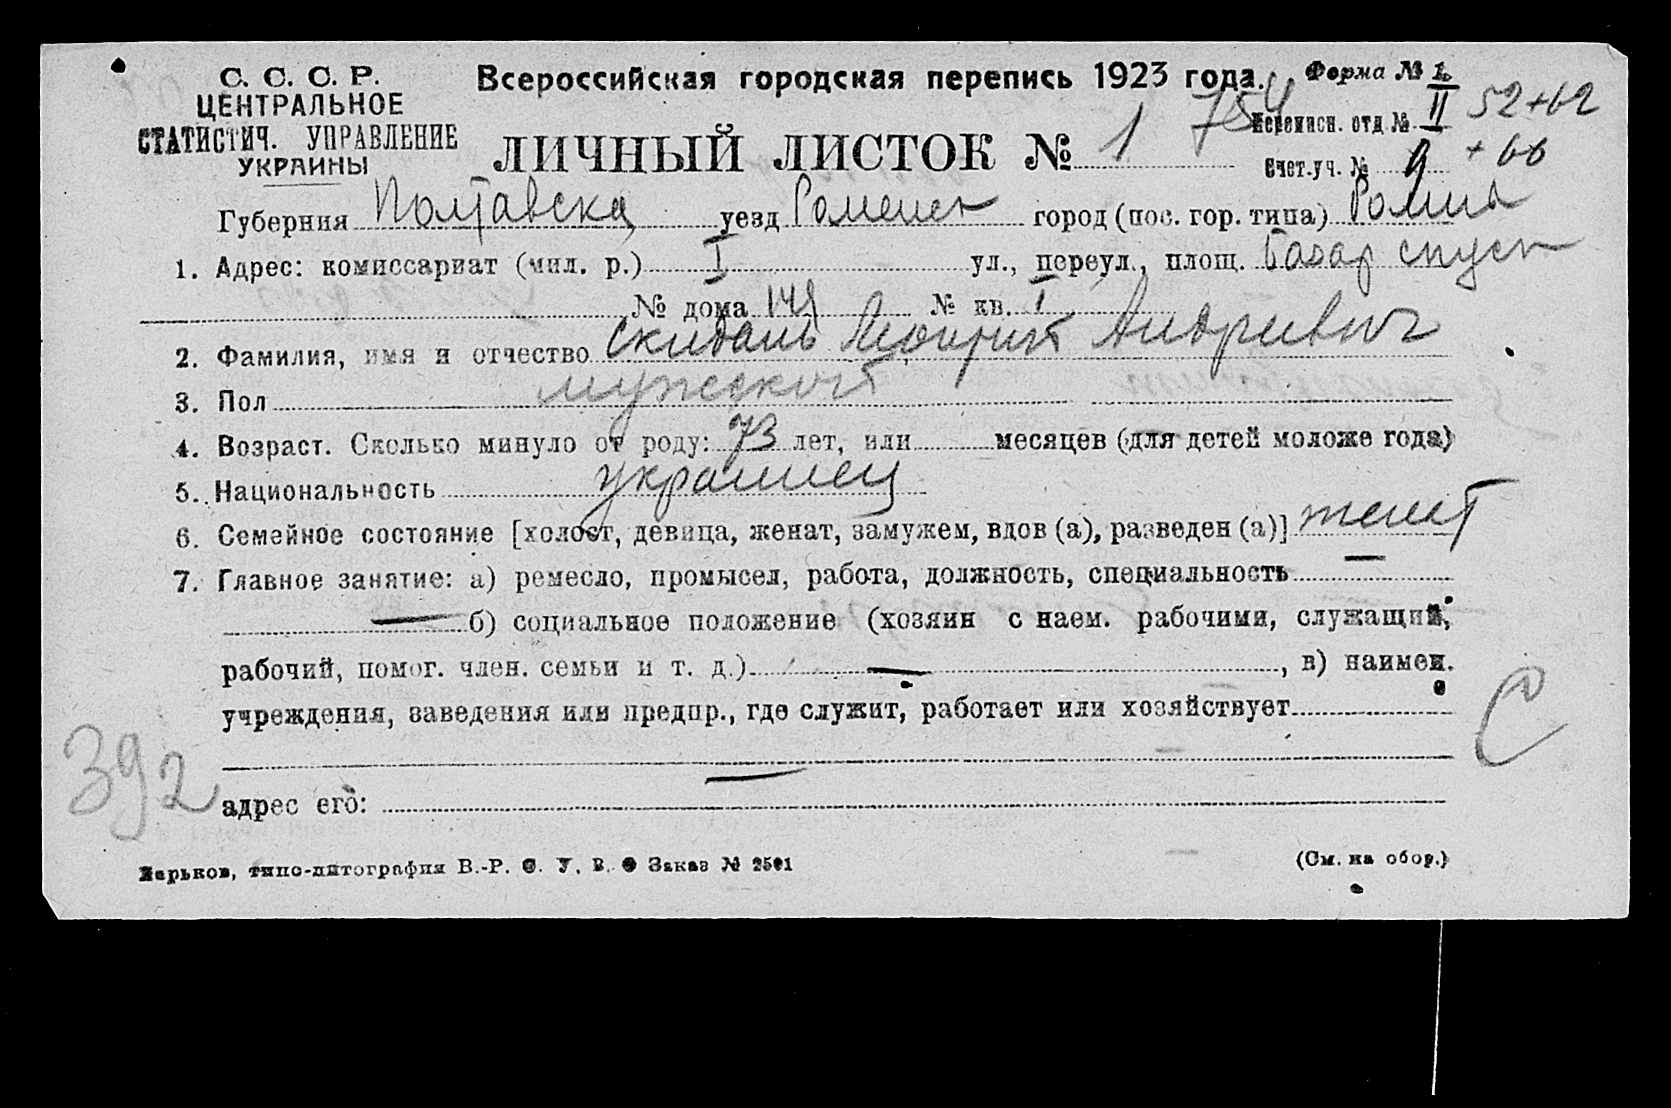 С. С. С. Р.
ЦЕНТРАЛЬНОЕ
СТАТИСТИЧ. УПРАВЛЕНИЕ
УКРАИНЫ
Всероссийская городская перепись 1923 года.
Форма № 1.
Переписн. отд. № II 52+62
ЛИЧНЫЙ ЛИСТОК № 1 754
Счет.уч. № 9 + 66
Губерния Полтавска уезд Роменск город (пос. гор. типа) Ромны
1. Адрес: комиссариат (мил. р.) I ул., переул., площ. Базар спуск
№ дома № кв. 1
2. Фамилия, имя и отчество Скидань Андриевич
3. Пол мужской
4. Возраст. Сколько минуло от роду: 73 лет, или месяцев (для детей моложе года)
5. Национальность украинец
6. Семейное состояние [холост, девица, женат, замужем, вдов (а), разведен (а)] женат
7. Главное занятие: а) ремесло, промысел, работа, должность, специальность —
— б) социальное положение (хозяин с наем. рабочими, служащий,
рабочий, помог. член. семьи и т. д.) — , в) наимен.
учреждения, заведения или предпр., где служит, работает или хозяйствует
адрес его: —
392
С
Харьков, типо-литография В.-Р. С. У. В. О Заказ № 2501
(См. на обор.)